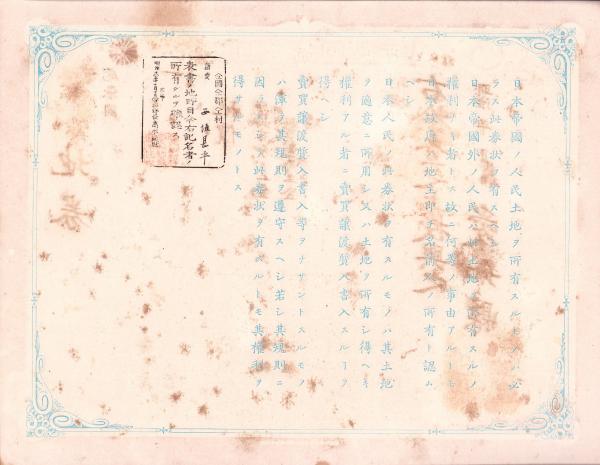 日本帝國ノ人民土地ヲ所有スルモノハ必
ラス此券状ヲ有スヘシ
日本帝國外ノ人民ハ此土地ヲ所有スルノ
權利ナキ者トス故ニ何等ノ事由アルトモ
日本政府ハ地主即チ名前人ノ所有ト認ム
ヘシ
日本人民ノ此券状ヲ有スルモノハ其土地
ヲ適意ニ所用シ又ハ土地ヲ所有シ得ヘキ
權利アル者ニ賣買讓渡質入書入スルヿヲ
得ヘシ
賣買讓渡質入書入等ヲナサントスルモノ
ハ渾テ其規則ヲ遵守スヘシ若シ其規則ニ
因ラスシテ此券状ヲ有スルトモ其權利ヲ
得サルモノトス
全國全郡全村
表書ノ地野目今右記名者ノ
所有タルヲ確認ス